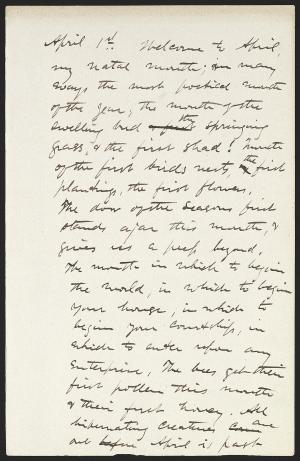 April 1st. Welcome to April,
my natal month; in many
ways the most poetical month
of the year, the month of the
swelling bud the springing
grass, & the first shad; month
of the first birds nests, the first
planting, the first flowers,
The door of the seasons first
stands ajar this month, &
gives us a peep beyond.
The month in which to begin
the world, in which to begin
your house, in which to
begin your courtship, in
which to enter upon any
enterprise, The bees get their
first pollen this month
& their first honey. All
hibernating creatures are
out before April is past